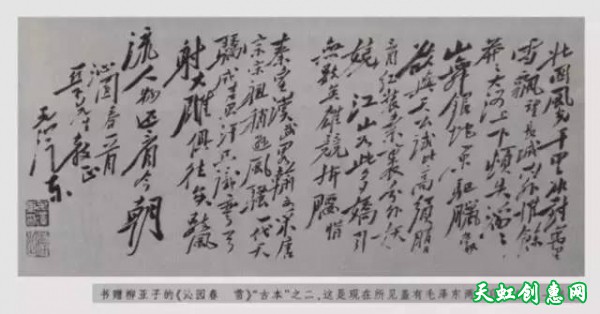 北国風光千里冰封萬里
雪飘望長城内外惟餘
莽莽大河上下頓失滔滔
山舞银蛇原驱臘象
欲與天公试比高須晴
日看红装素裹分外妖
娆 江山如此多嬌引
無数英雄競折腰惜
秦皇漢武略输文采唐
宗宋祖稍逊風骚一代天
骄成吉思汗只识弯弓
射大雕俱往矣数風
流人物还看今朝
沁園春一首
亚子先生教正
毛泽东
书赠柳亚子的《沁园春 雪》“古本”之二，这是现在所见盖有毛泽东两
天虹创意网